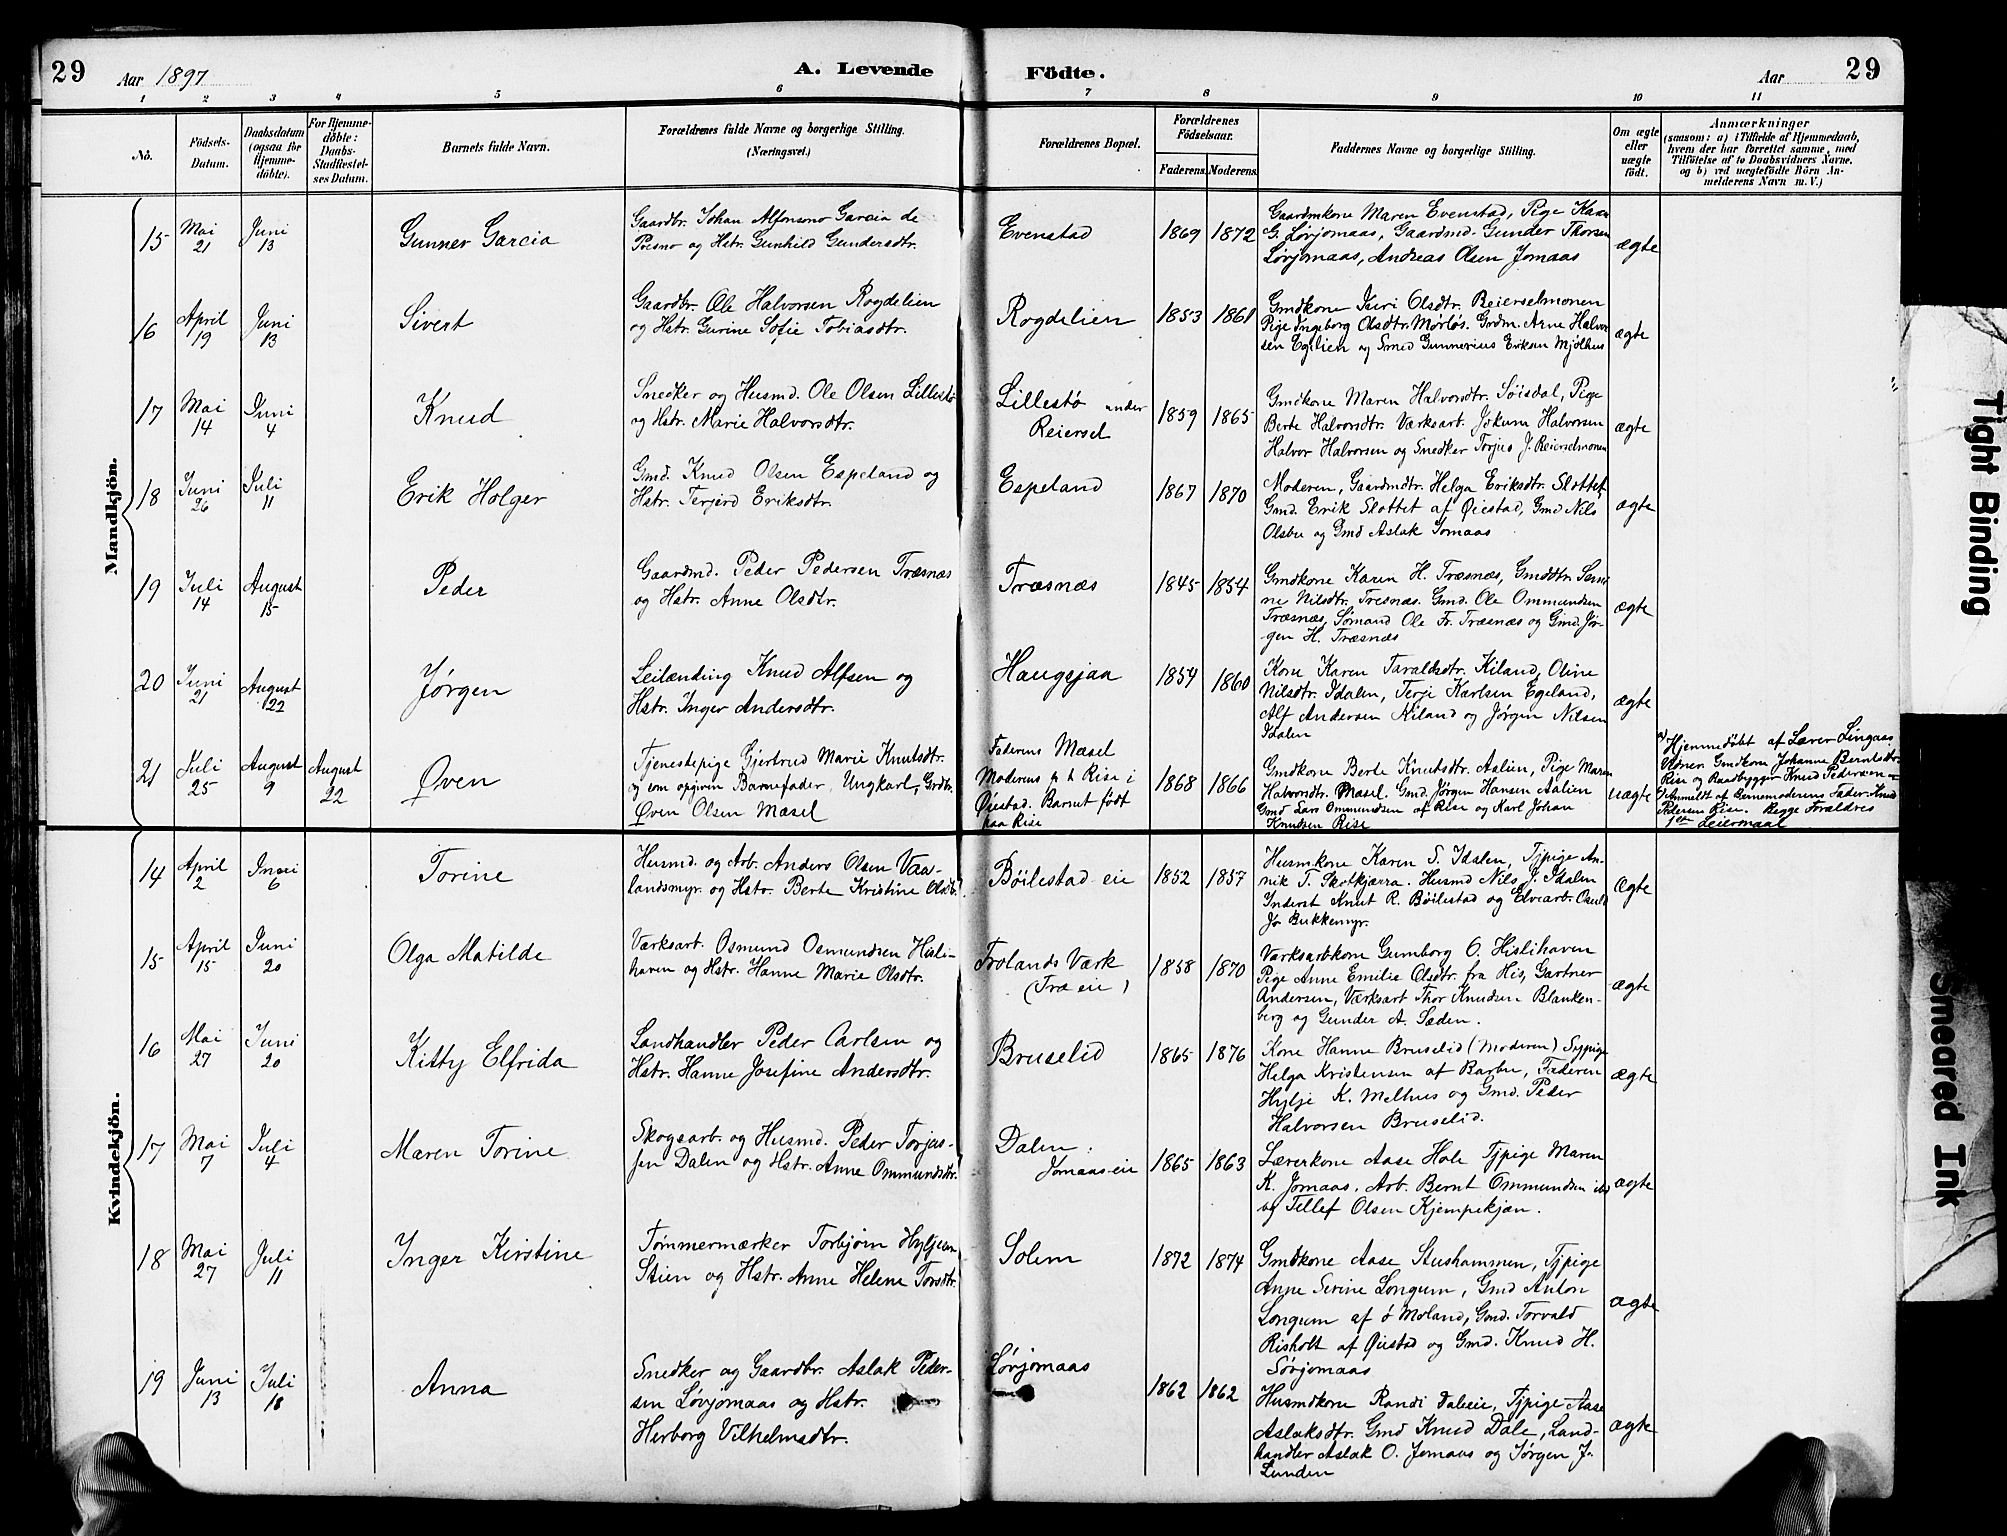 29 Aar 1897 A. Levende Födte. Aar 29
1 2 3 4 5 6 7 8 9 10 11
No. Födsels-Datum. Daabsdatum (ogsaa for Hjemme-döbte). For Hjemme-döbte: Daabs-Stadfæstel-ses Datum. Barnets fulde Navn. Forældrenes fulde Navne og borgerlige Stilling. (Næringsvei.) Forældrenes Bopæl. Forældrenes Födselsaar. Faderens. Moderens. Faddernes Navne og borgerlige Stilling. Om ægte eller uægte födt. Anmærkninger (saasom: a) i Tilfælde af Hjemmedaab, hvem der har forrettet samme, med Tilföielse af to Daabsvidners Navne. og b) ved uægtefödte Börn An-melderens Navn m. V.)
Mandkjön.
15 Mai 21 Juni 13 Gunner Garcia
Gaardbr. Johan Alfonsno Garcia de
Presno og Hstr. Gunhild Gundersdtr.
Evenstad 1869 1872
Gaardmkone Maren Evenstad, Pige Kaare
G. Løvjomaas, Gaardmd. Gunder Thorsen
Løvjomaas, Andreas Olsen Jomaas
ægte
16 April 19 Juni 13 Sivert
Gaardbr. Ole Halvorsen Rogdelien
og Hstr. Gurine Sofie Tobiasdtr.
Rogdelien 1853 1861
Gmdkone Siri Olsdtr. Reierselmonen
Pige Ingeborg Olsdtr. Morløs. Grdm. Arne Halvor
sen Egelien og Smed Gunnerius Eriksen Mjølhus
ægte
17 Mai 14 Juni 4 Knud
Snedker og Husmd. Ole Olsen Lillestø
og Hstr. Marie Halvorsdtr.
Lillestø under
Reiersel
1859 1865
Gmdkone Maren Halvorsdtr. Søisdal, Pige
Berte Halvorsdtr. Værksarb. Jokum Halvorsen
Halvor Halvorsen og Snedker Torjus J. Reierselmonen
ægte
18 Juni 26 Juli 11 Erik Holger
Gmd. Knud Olsen Espeland og
Hstr. Terjerd Eriksdtr.
Espeland 1867 1870
Moderen, Gaardmdtr. Helga Eriksdtr. Slottet
Gmd. Erik Slottet af Øiestad, Gmd Nils
Olsbu og Gmd Aslak Jomaas
ægte
19 Juli 14 August 15 Peder
Gaardmd. Peder Pedersen Træsnæs
og Hstr. Anne Olsdtr.
Træsnæs 1845 1854
Gmdkone Karen H. Træsnæs, Gmddtr. Semi
ne Nilsdtr. Tresnæs. Gmd. Ole Ommundsen
Træsnæs, Sømand Ole Fr. Træsnæs og Gmd. Jør-
gen H. Træsnæs
ægte
20 Juni 21 August 22 Jørgen
Leilænding Knud Alfsen og
Hstr. Inger Andersdtr.
Haugsjaa 1854 1860
Kone Karen Taraldsdtr. Kiland, Oline
Nilsdtr. Idalen, Terje Karlsen Egeland,
Alf Andersen Kiland og Jørgen Nilsen
Idalen
ægte
21 Juli 25 August 9 August 22 Øven
Tjenestepige Gjertrud Marie Knutsdtr.
og som opgiven Barnefader, Ungkarl, Grdbr.
Øven Olsen Mæsel
Faderens Mæsel
Moderens p t Rise i
Øiestad. Barnet født
paa Rise
1868 1866
Gmdkone Berte Knutsdtr. Aalien, Pige Maren
Halvorsdtr. Mæsel. Gmd. Jørgen Hansen Aalien
Gmd Lars Ommundsen af Rise og Karl Johan
Knudsen Rise
uægte
a) Hjemmedøbt af Lærer Lingaas
Vidner. Gmdkone Johanne Berntsdtr.
Rise og Baadbygger Knud Pedersen
b) Anmeldt af Barnemoderens Fader Knud
Pedersen Rise. Begge Forældres
1ste Leiermaal
Kvindekjön.
14 April 2 Juni 6 Torine
Husmd. og Arb. Anders Olsen Vaa-
landsmyr. og Hstr. Berte Kristine Olsdtr.
Bøilestad eie 1852 1857
Husmkone Karen S. Idalen, Tjpige An-
nik T. Skotkjærra. Husmd Nils J. Idalen
Inderst Knut R. Bøilestad og Elvearb. Osuld
Jo Bukkemyr.
Ægte
15 April 15 Juni 20 Olga Matilde
Værksarb. Osmund Osmundsen Hisli-
haven og Hstr. Hanne Marie Olsdtr.
Frolands Værk
(Træ eie)
1858 1870
Værksarbkone Gunnborg O. Hislihaven
Pige Anne Emilie Olsdtr. fra His, Gartner
Andersen, Værksarb Thor Knudsen Blanken-
berg og Gunder A. Sæden.
ægte
16 Mai 27 Juni 20 Kitty Elfrida
Landhandler Peder Carlsen og
Hstr. Hanne Josefine Andersdtr.
Bruselid 1865 1876
Kone Hanne Bruselid (Moderen) Sypige
Helga Kristensen af Barbu, Faderen
Hylje K. Melhus og Gmd. Peder
Halvorsen Bruselid.
ægte
17 Mai 7 Juli 4 Maren Torine
Skogsarb. og Husmd. Peder Torjus-
sen Dalen og Hstr. Anne Ommundsdtr.
Dalen.
Jomaas eie
1865 1863
Lærerkone Aase Hole Tjpige Maren
K. Jomaas. Arb. Bernt Ommundsen ibd
og Tellef Olsen Kjempekjær.
ægte
18 Mai 27 Juli 11 Inger Kirstine
Tømmermærker Torbjørn Hyljesen
Stien og Hstr. Anne Helene Torsdtr.
Solem 1872 1874
Gmdkone Aase Stushammen, Tjpige
Anne Serine Longum, Gmd Anton
Longum af ø Moland, Gmd. Torvald
Risholt af Øiestad og Gmd. Knud H.
Sørjomaas
ægte
19 Juni 13 Juli 18 Anna
Snedker og Gaardbr. Aslak Peder-
sen Løvjomaas og Hstr.
Herborg Vilhelmsdtr.
Løvjomaas
1862 1862
Husmdkone Randi Daleeie, Tjpige Aase
Aslaksdtr. Gmd Knud Dale, Land-
handler Aslak O. Jomaas og Jørgen J.
Lunden
ægte
Tight Binding
Smeared Ink